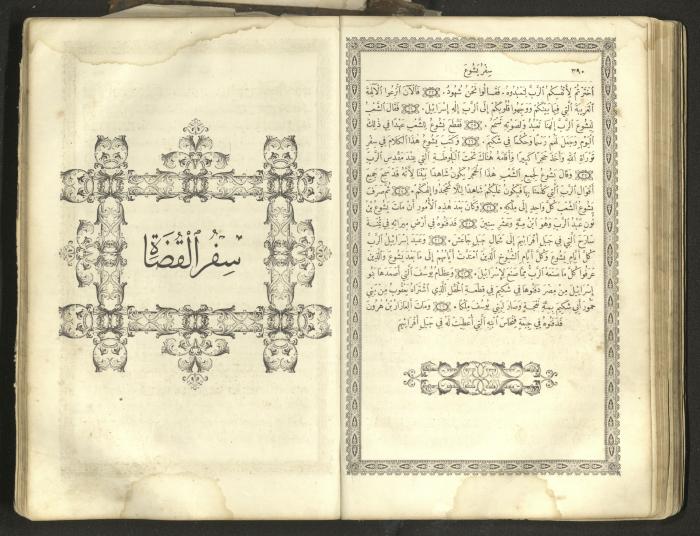 ٣٩٠
سِفْرُ يَشُوعَ
اخْتَرْتُمْ لِأَنْفُسِكُمُ ٱلرَّبَّ لِتَعْبُدُوهُ. فَقَالُوا نَحْنُ شُهُودٌ. فَٱلْآنَ ٱنْزِعُوا ٱلْآلِهَةَ
ٱلْغَرِيبَةَ ٱلَّتِي فِيمَا بَيْنَكُمْ وَوَجِّهُوا قُلُوبَكُمْ إِلَى ٱلرَّبِّ إِلٰهِ إِسْرَائِيلَ. فَقَالَ ٱلشَّعْبُ
لِيَشُوعَ ٱلرَّبَّ إِلٰهَنَا نَعْبُدُ وَلِصَوْتِهِ نَسْمَعُ. فَقَطَعَ يَشُوعُ لِلشَّعْبِ عَهْدًا فِي ذٰلِكَ
ٱلْيَوْمِ وَجَعَلَ لَهُمْ رَسْمًا وَحُكْمًا فِي شَكِيمَ. وَكَتَبَ يَشُوعُ هٰذَا ٱلْكَلَامَ فِي سِفْرِ
تَوْرَاةِ ٱللهِ وَأَخَذَ حَجَرًا كَبِيرًا وَأَقَامَهُ هُنَاكَ تَحْتَ ٱلْبَلُّوطَةِ ٱلَّتِي عِنْدَ مَقْدِسِ ٱلرَّبِّ
وَقَالَ يَشُوعُ لِجَمِيعِ ٱلشَّعْبِ هٰذَا ٱلْحَجَرُ يَكُونُ شَاهِدًا بَيْنَنَا لِأَنَّهُ قَدْ سَمِعَ جَمِيعَ
أَقْوَالِ ٱلرَّبِّ ٱلَّتِي كَلَّمَنَا بِهَا فَيَكُونُ عَلَيْكُمْ شَاهِدًا لِئَلَّا تَجْحَدُوا إِلٰهَكُمْ. ثُمَّ صَرَفَ
يَشُوعُ ٱلشَّعْبَ كُلَّ وَاحِدٍ إِلَى مِلْكِهِ. وَكَانَ بَعْدَ هٰذِهِ ٱلْأُمُورِ أَنْ مَاتَ يَشُوعُ بْنُ
نُونَ عَبْدُ ٱلرَّبِّ وَهُوَ ٱبْنُ مِئَةٍ وَعَشْرِ سِنِينَ. فَدَفَنُوهُ فِي أَرْضِ مِيرَاثِهِ فِي تِمْنَةَ
سَارَحَ ٱلَّتِي فِي جَبَلِ أَفْرَائِيمَ إِلَى شِمَالِ جَبَلِ جَاعَشَ. وَعَبَدَ إِسْرَائِيلُ ٱلرَّبَّ
كُلَّ أَيَّامِ يَشُوعَ وَكُلَّ أَيَّامِ ٱلشُّيُوخِ ٱلَّذِينَ ٱمْتَدَّتْ أَيَّامُهُمْ إِلَى مَا بَعْدَ يَشُوعَ وَٱلَّذِينَ
عَرَفُوا كُلَّ مَا صَنَعَهُ ٱلرَّبُّ مِمَّا صَنَعَ لِإِسْرَائِيلَ. وَعِظَامُ يُوسُفَ ٱلَّتِي أَصْعَدَهَا بَنُو
إِسْرَائِيلَ مِنْ مِصْرَ دَفَنُوهَا فِي شَكِيمَ فِي قِطْعَةِ ٱلْحَقْلِ ٱلَّذِي ٱشْتَرَاهُ يَعْقُوبُ مِنْ بَنِي
حَمُورَ أَبِي شَكِيمَ بِمِئَةِ نَعْجَةٍ وَصَارَ لِبَنِي يُوسُفَ مِلْكًا. وَمَاتَ أَلِعَازَارُ بْنُ هٰرُونَ
فَدَفَنُوهُ فِي جِبْعَةِ فِنْحَاسَ ٱبْنِهِ ٱلَّتِي أُعْطِيَتْ لَهُ فِي جَبَلِ أَفْرَائِيمَ
سِفْرُ ٱلْقُضَاةِ